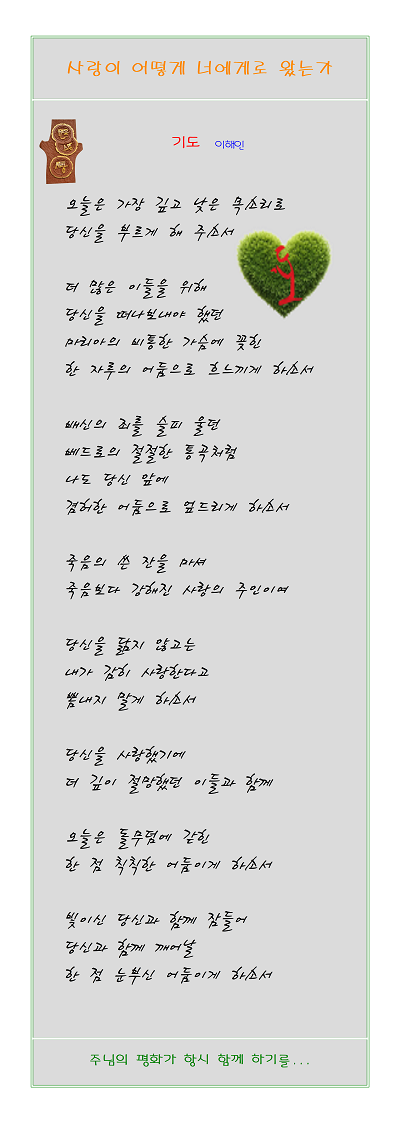 사랑이 어떻게 너에게로 왔는가
기도 이해인
오늘은 가장 깊고 낮은 목소리로
당신을 부르게 해 주소서
더 많은 이들을 위해
당신을 떠나보내야 했던
마리아의 비통한 가슴에 꽂힌
한 자루의 어둠으로 흐느끼게 하소서
배신의 죄를 슬피 울던
베드로의 절절한 통곡처럼
나도 당신 앞에
겸허한 어둠으로 엎드리게 하소서
죽음의 쓴 잔을 마셔
죽음보다 강해진 사랑의 주인이여
당신을 닮지 않고는
내가 감히 사랑한다고
뽐내지 말게 하소서
당신을 사랑했기에
더 깊이 절망했던 이들과 함께
오늘은 돌무덤에 갇힌
한 점 칙칙한 어둠이게 하소서
빛이신 당신과 함께 잠들어
당신과 함께 깨어날
한 점 눈부신 어둠이게 하소서
주님의 평화가 항시 함께 하기를...